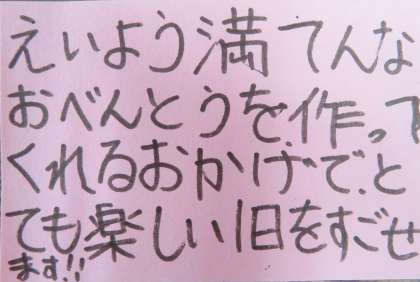 えいよう満てんな
おべんとうを作って
くれるおかげで、と
ても楽しい1日をすごせ
ます!!